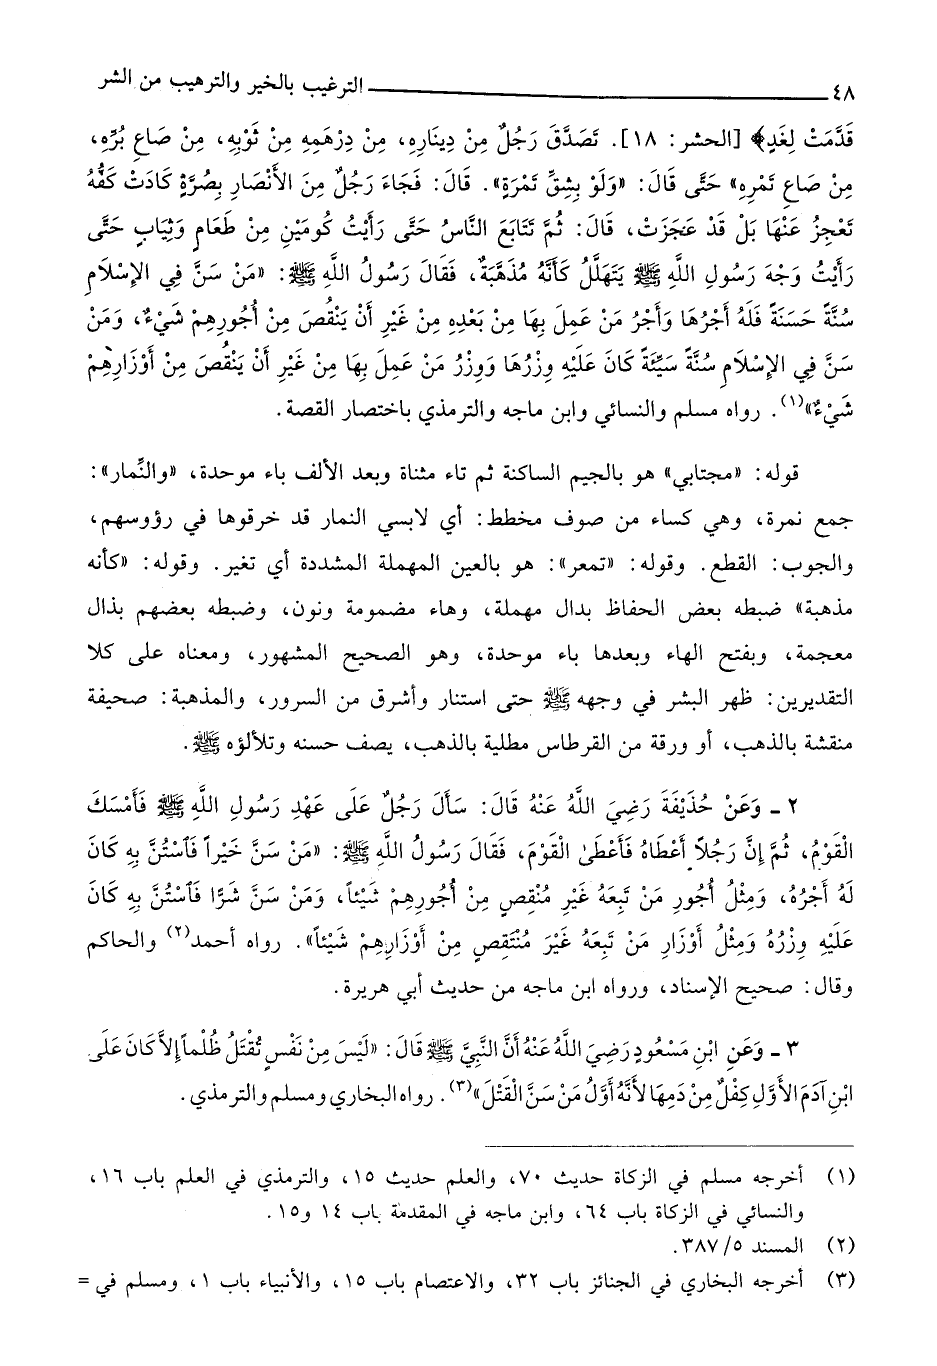 ٤٨ الترغيب بالخير والترهيب من الشر
قَدَّمَتْ لِغَدٍ﴾ [الحشر: ١٨]. تَصَدَّقَ رَجُلٌ مِنْ دِينَارِهِ، مِنْ دِرْهَمِهِ مِنْ ثَوْبِهِ، مِنْ صَاعِ بُرِّهِ،
مِنْ صَاعِ تَمْرِهِ» حَتَّى قَالَ: «وَلَوْ بِشِقِّ تَمْرَةٍ». قَالَ: فَجَاءَ رَجُلٌ مِنَ الأَنْصَارِ بِصُرَّةٍ كَادَتْ كَفُّهُ
تَعْجِزُ عَنْهَا بَلْ قَدْ عَجَزَتْ، قَالَ: ثُمَّ تَتَابَعَ النَّاسُ حَتَّى رَأَيْتُ كُومَيْنِ مِنْ طَعَامٍ وَثِيَابٍ حَتَّى
رَأَيْتُ وَجْهَ رَسُولِ اللَّهِ ﷺ يَتَهَلَّلُ كَأَنَّهُ مُذْهَبَةٌ، فَقَالَ رَسُولُ اللَّهِ ﷺ: «مَنْ سَنَّ فِي الإِسْلَامِ
سُنَّةً حَسَنَةً فَلَهُ أَجْرُهَا وَأَجْرُ مَنْ عَمِلَ بِهَا مِنْ بَعْدِهِ مِنْ غَيْرِ أَنْ يَنْقُصَ مِنْ أُجُورِهِمْ شَيْءٌ، وَمَنْ
سَنَّ فِي الإِسْلَامِ سُنَّةً سَيِّئَةً كَانَ عَلَيْهِ وِزْرُهَا وَوِزْرُ مَنْ عَمِلَ بِهَا مِنْ غَيْرِ أَنْ يَنْقُصَ مِنْ أَوْزَارِهِمْ
شَيْءٌ»(١). رواه مسلم والنسائي وابن ماجه والترمذي باختصار القصة.
قوله: «مجتابي» هو بالجيم الساكنة ثم تاء مثناة وبعد الألف باء موحدة، «والنِّمار»:
جمع نمرة، وهي كساء من صوف مخطط: أي لابسي النمار قد خرقوها في رؤوسهم،
والجوب: القطع. وقوله: «تمعر»: هو بالعين المهملة المشددة أي تغير. وقوله: «كأنه
مذهبة» ضبطه بعض الحفاظ بدال مهملة، وهاء مضمومة ونون، وضبطه بعضهم بذال
معجمة، وبفتح الهاء وبعدها باء موحدة، وهو الصحيح المشهور، ومعناه على كلا
التقديرين: ظهر البشر في وجهه ﷺ حتى استنار وأشرق من السرور، والمذهبة: صحيفة
منقشة بالذهب، أو ورقة من القرطاس مطلية بالذهب، يصف حسنه وتلألؤه ﷺ.
٢ ـ وَعَنْ حُذَيْفَةَ رَضِيَ اللَّهُ عَنْهُ قَالَ: سَأَلَ رَجُلٌ عَلَى عَهْدِ رَسُولِ اللَّهِ ﷺ فَأَمْسَكَ
الْقَوْمُ، ثُمَّ إِنَّ رَجُلاً أَعْطَاهُ فَأَعْطَى الْقَوْمَ، فَقَالَ رَسُولُ اللَّهِ ﷺ: «مَنْ سَنَّ خَيْراً فَاسْتُنَّ بِهِ كَانَ
لَهُ أَجْرُهُ، وَمِثْلُ أُجُورِ مَنْ تَبِعَهُ غَيْرِ مُنْقِصٍ مِنْ أُجُورِهِمْ شَيْئاً، وَمَنْ سَنَّ شَرًّا فَاسْتُنَّ بِهِ كَانَ
عَلَيْهِ وِزْرُهُ وَمِثْلُ أَوْزَارِ مَنْ تَبِعَهُ غَيْرَ مُنْتَقِصٍ مِنْ أَوْزَارِهِمْ شَيْئاً». رواه أحمد(٢) والحاكم
وقال: صحيح الإسناد، ورواه ابن ماجه من حديث أبي هريرة.
٣ ـ وَعَنِ ابْنِ مَسْعُودٍ رَضِيَ اللَّهُ عَنْهُ أَنَّ النَّبِيَّ ﷺ قَالَ: «لَيْسَ مِنْ نَفْسٍ تُقْتَلُ ظُلْماً إِلاَّ كَانَ عَلَى
ابْنِ آدَمَ الأَوَّلِ كِفْلٌ مِنْ دَمِهَا لأَنَّهُ أَوَّلُ مَنْ سَنَّ الْقَتْلَ»(٣). رواه البخاري ومسلم والترمذي.
(١) أخرجه مسلم في الزكاة حديث ٧٠، والعلم حديث ١٥، والترمذي في العلم باب ١٦،
والنسائي في الزكاة باب ٦٤، وابن ماجه في المقدمة باب ١٤ و١٥.
(٢) المسند ٣٨٧/٥.
(٣) أخرجه البخاري في الجنائز باب ٣٢، والاعتصام باب ١٥، والأنبياء باب ١، ومسلم في =